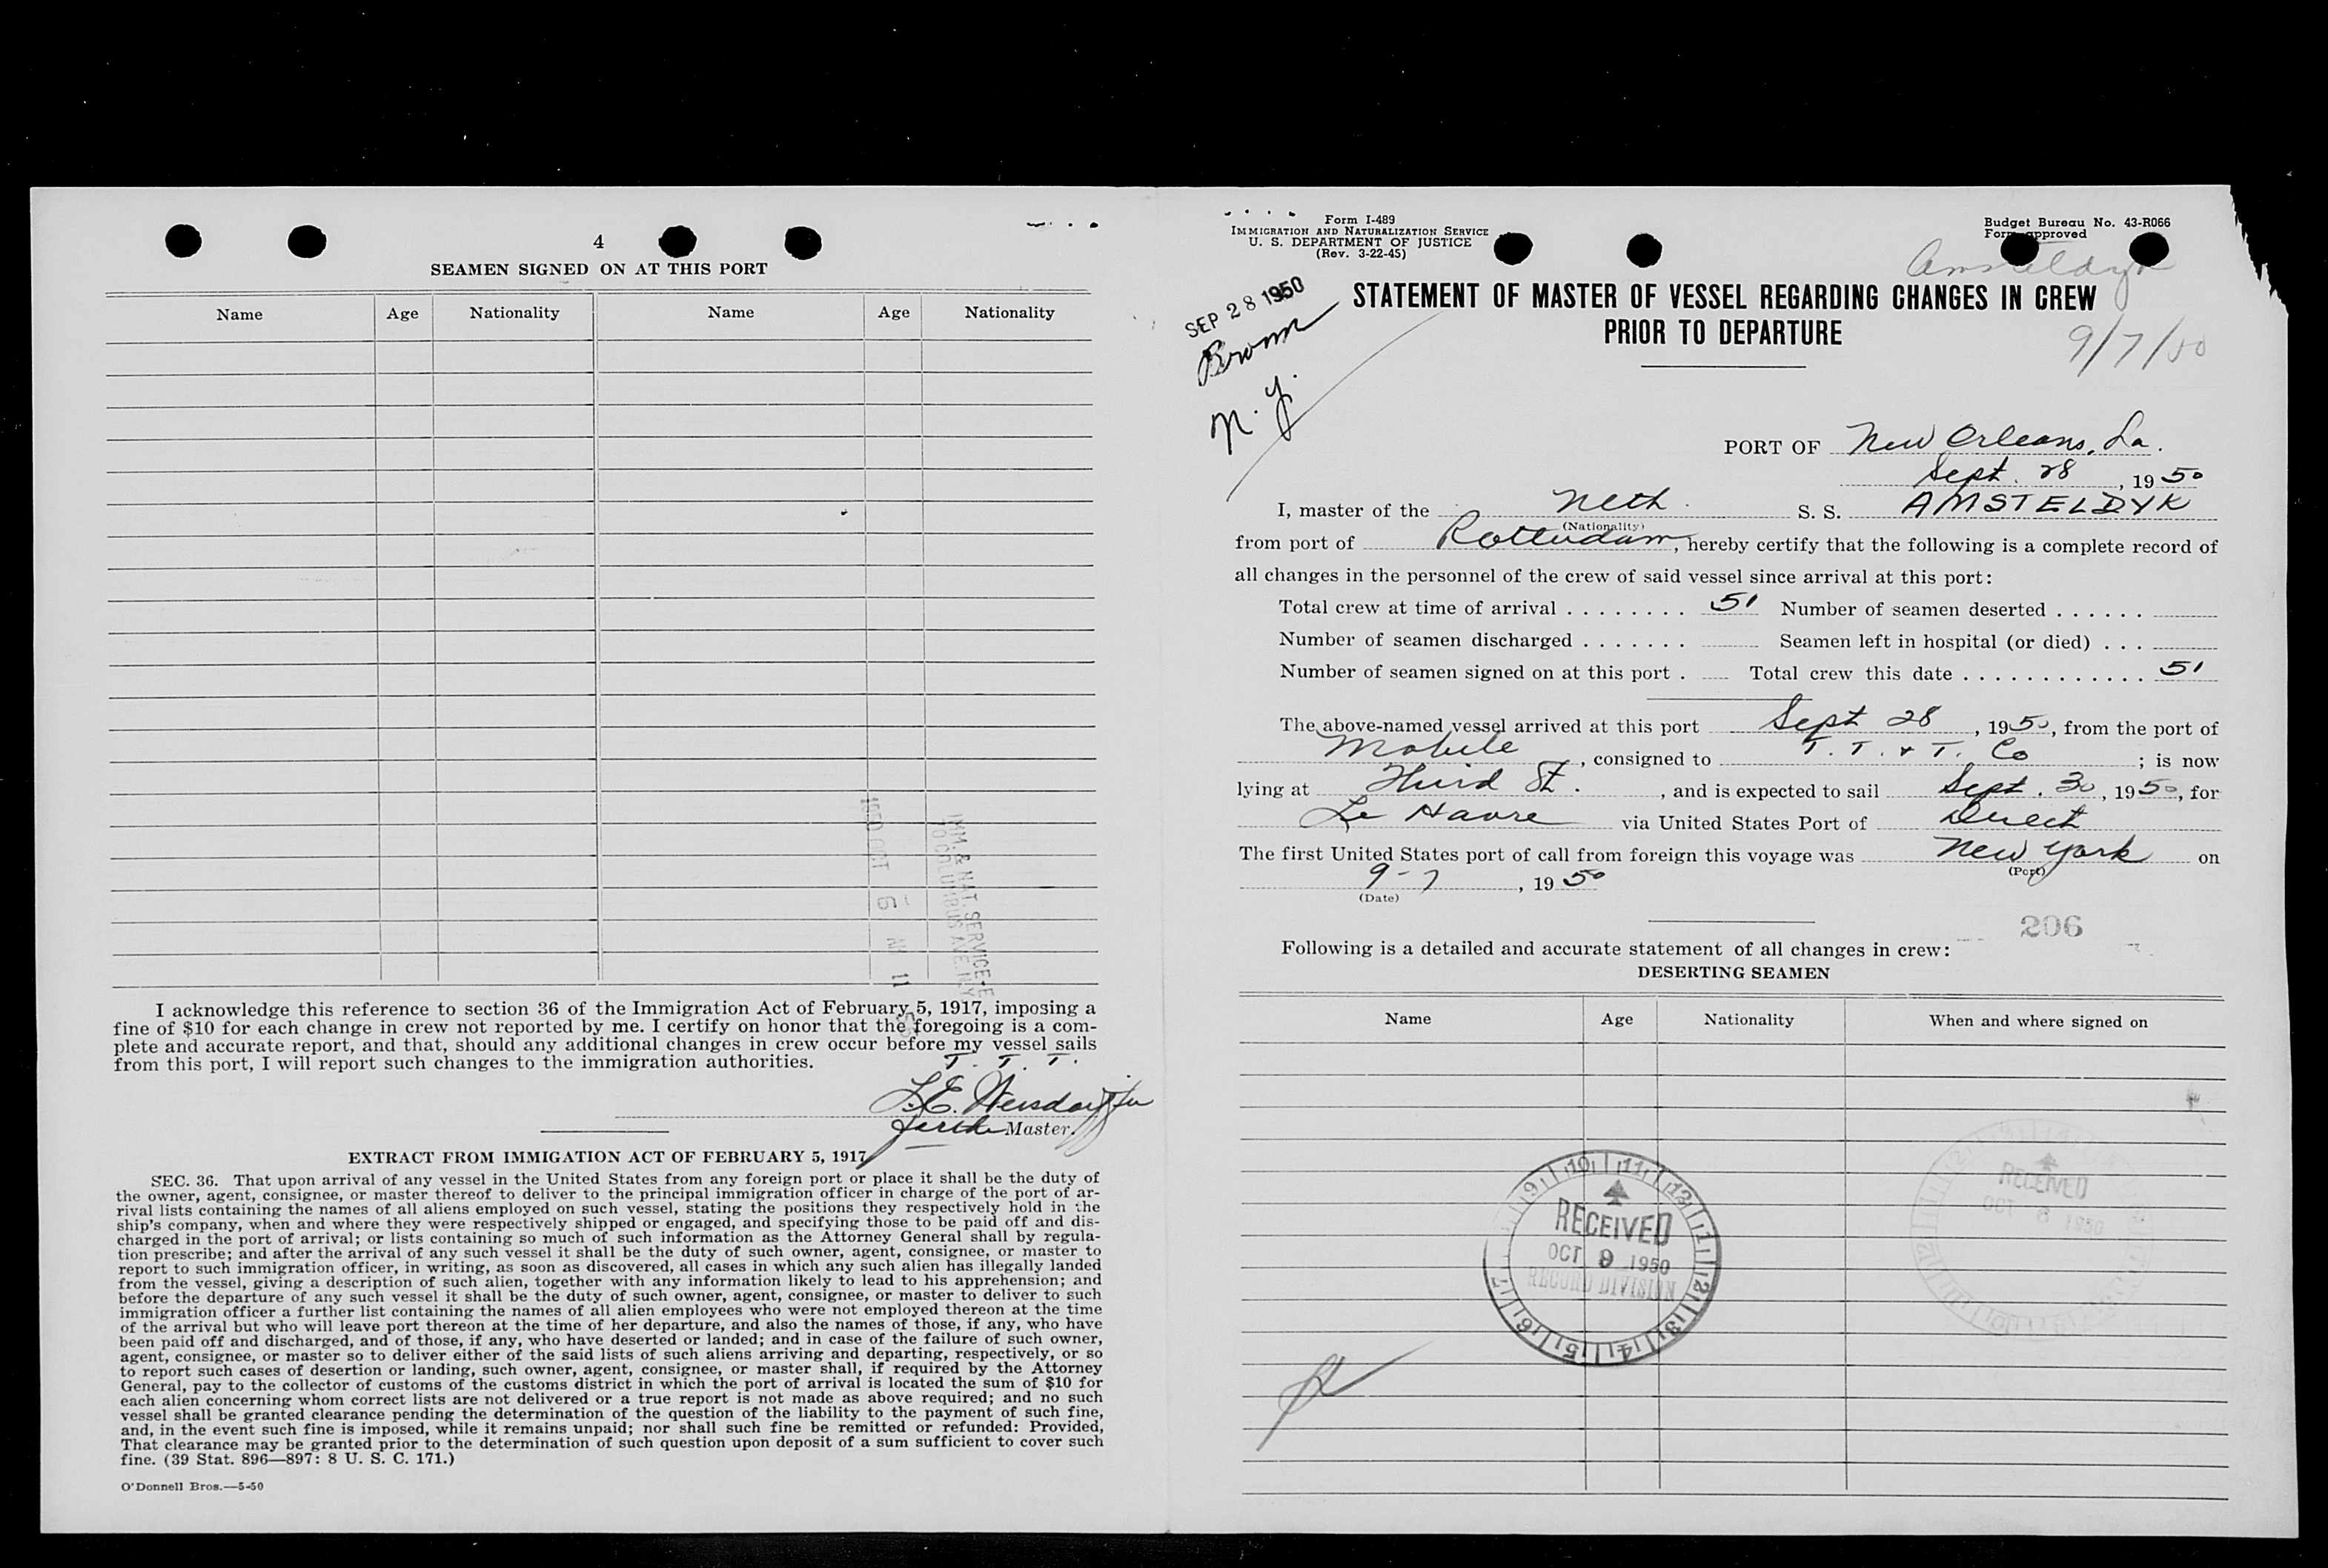 4
SEAMEN SIGNED ON AT THIS PORT
Name Age Nationality Name Age Nationality
1950 OCT 6 AM 11
IMM. & NAT. SERVICE
70 COLUMBUS AVE N.Y.
I acknowledge this reference to section 36 of the Immigration Act of February 5, 1917, imposing a
fine of $10 for each change in crew not reported by me. I certify on honor that the foregoing is a com-
plete and accurate report, and that, should any additional changes in crew occur before my vessel sails
from this port, I will report such changes to the immigration authorities.
T. T. T.
Master.
EXTRACT FROM IMMIGATION ACT OF FEBRUARY 5, 1917
SEC. 36. That upon arrival of any vessel in the United States from any foreign port or place it shall be the duty of
the owner, agent, consignee, or master thereof to deliver to the principal immigration officer in charge of the port of ar-
rival lists containing the names of all aliens employed on such vessel, stating the positions they respectively hold in the
ship's company, when and where they were respectively shipped or engaged, and specifying those to be paid off and dis-
charged in the port of arrival; or lists containing so much of such information as the Attorney General shall by regula-
tion prescribe; and after the arrival of any such vessel it shall be the duty of such owner, agent, consignee, or master to
report to such immigration officer, in writing, as soon as discovered, all cases in which any such alien has illegally landed
from the vessel, giving a description of such alien, together with any information likely to lead to his apprehension; and
before the departure of any such vessel it shall be the duty of such owner, agent, consignee, or master to deliver to such
immigration officer a further list containing the names of all alien employees who were not employed thereon at the time
of the arrival but who will leave port thereon at the time of her departure, and also the names of those, if any, who have
been paid off and discharged, and of those, if any, who have deserted or landed; and in case of the failure of such owner,
agent, consignee, or master so to deliver either of the said lists of such aliens arriving and departing, respectively, or so
to report such cases of desertion or landing, such owner, agent, consignee, or master shall, if required by the Attorney
General, pay to the collector of customs of the customs district in which the port of arrival is located the sum of $10 for
each alien concerning whom correct lists are not delivered or a true report is not made as above required; and no such
vessel shall be granted clearance pending the determination of the question of the liability to the payment of such fine,
and, in the event such fine is imposed, while it remains unpaid; nor shall such fine be remitted or refunded: Provided,
That clearance may be granted prior to the determination of such question upon deposit of a sum sufficient to cover such
fine. (39 Stat. 896—897: 8 U. S. C. 171.)
O'Donnell Bros.—5-50
Form I-489
IMMIGRATION AND NATURALIZATION SERVICE
U. S. DEPARTMENT OF JUSTICE
(Rev. 3-22-45)
Budget Bureau No. 43-R066
Form approved
Amsteldyk
SEP 28 1950
Brown
N. Y.
STATEMENT OF MASTER OF VESSEL REGARDING CHANGES IN CREW
PRIOR TO DEPARTURE
9/7/50
PORT OF New Orleans, La.
Sept. 28, 1950
I, master of the Neth. S. S. AMSTELDYK
(Nationality)
from port of Rotterdam, hereby certify that the following is a complete record of
all changes in the personnel of the crew of said vessel since arrival at this port:
Total crew at time of arrival ........ 51 Number of seamen deserted ......
Number of seamen discharged ....... Seamen left in hospital (or died) ...
Number of seamen signed on at this port . Total crew this date ............ 51
The above-named vessel arrived at this port Sept 28, 1950, from the port of
Mobile, consigned to T. T. & T. Co; is now
lying at Third St., and is expected to sail Sept. 30, 1950, for
Le Havre via United States Port of Direct
The first United States port of call from foreign this voyage was New York on
(Port)
9-7, 1950
(Date)
206
Following is a detailed and accurate statement of all changes in crew:
DESERTING SEAMEN
Name Age Nationality When and where signed on
RECEIVED
OCT 9 1950
RECORD DIVISION
RECEIVED
OCT 6 1950